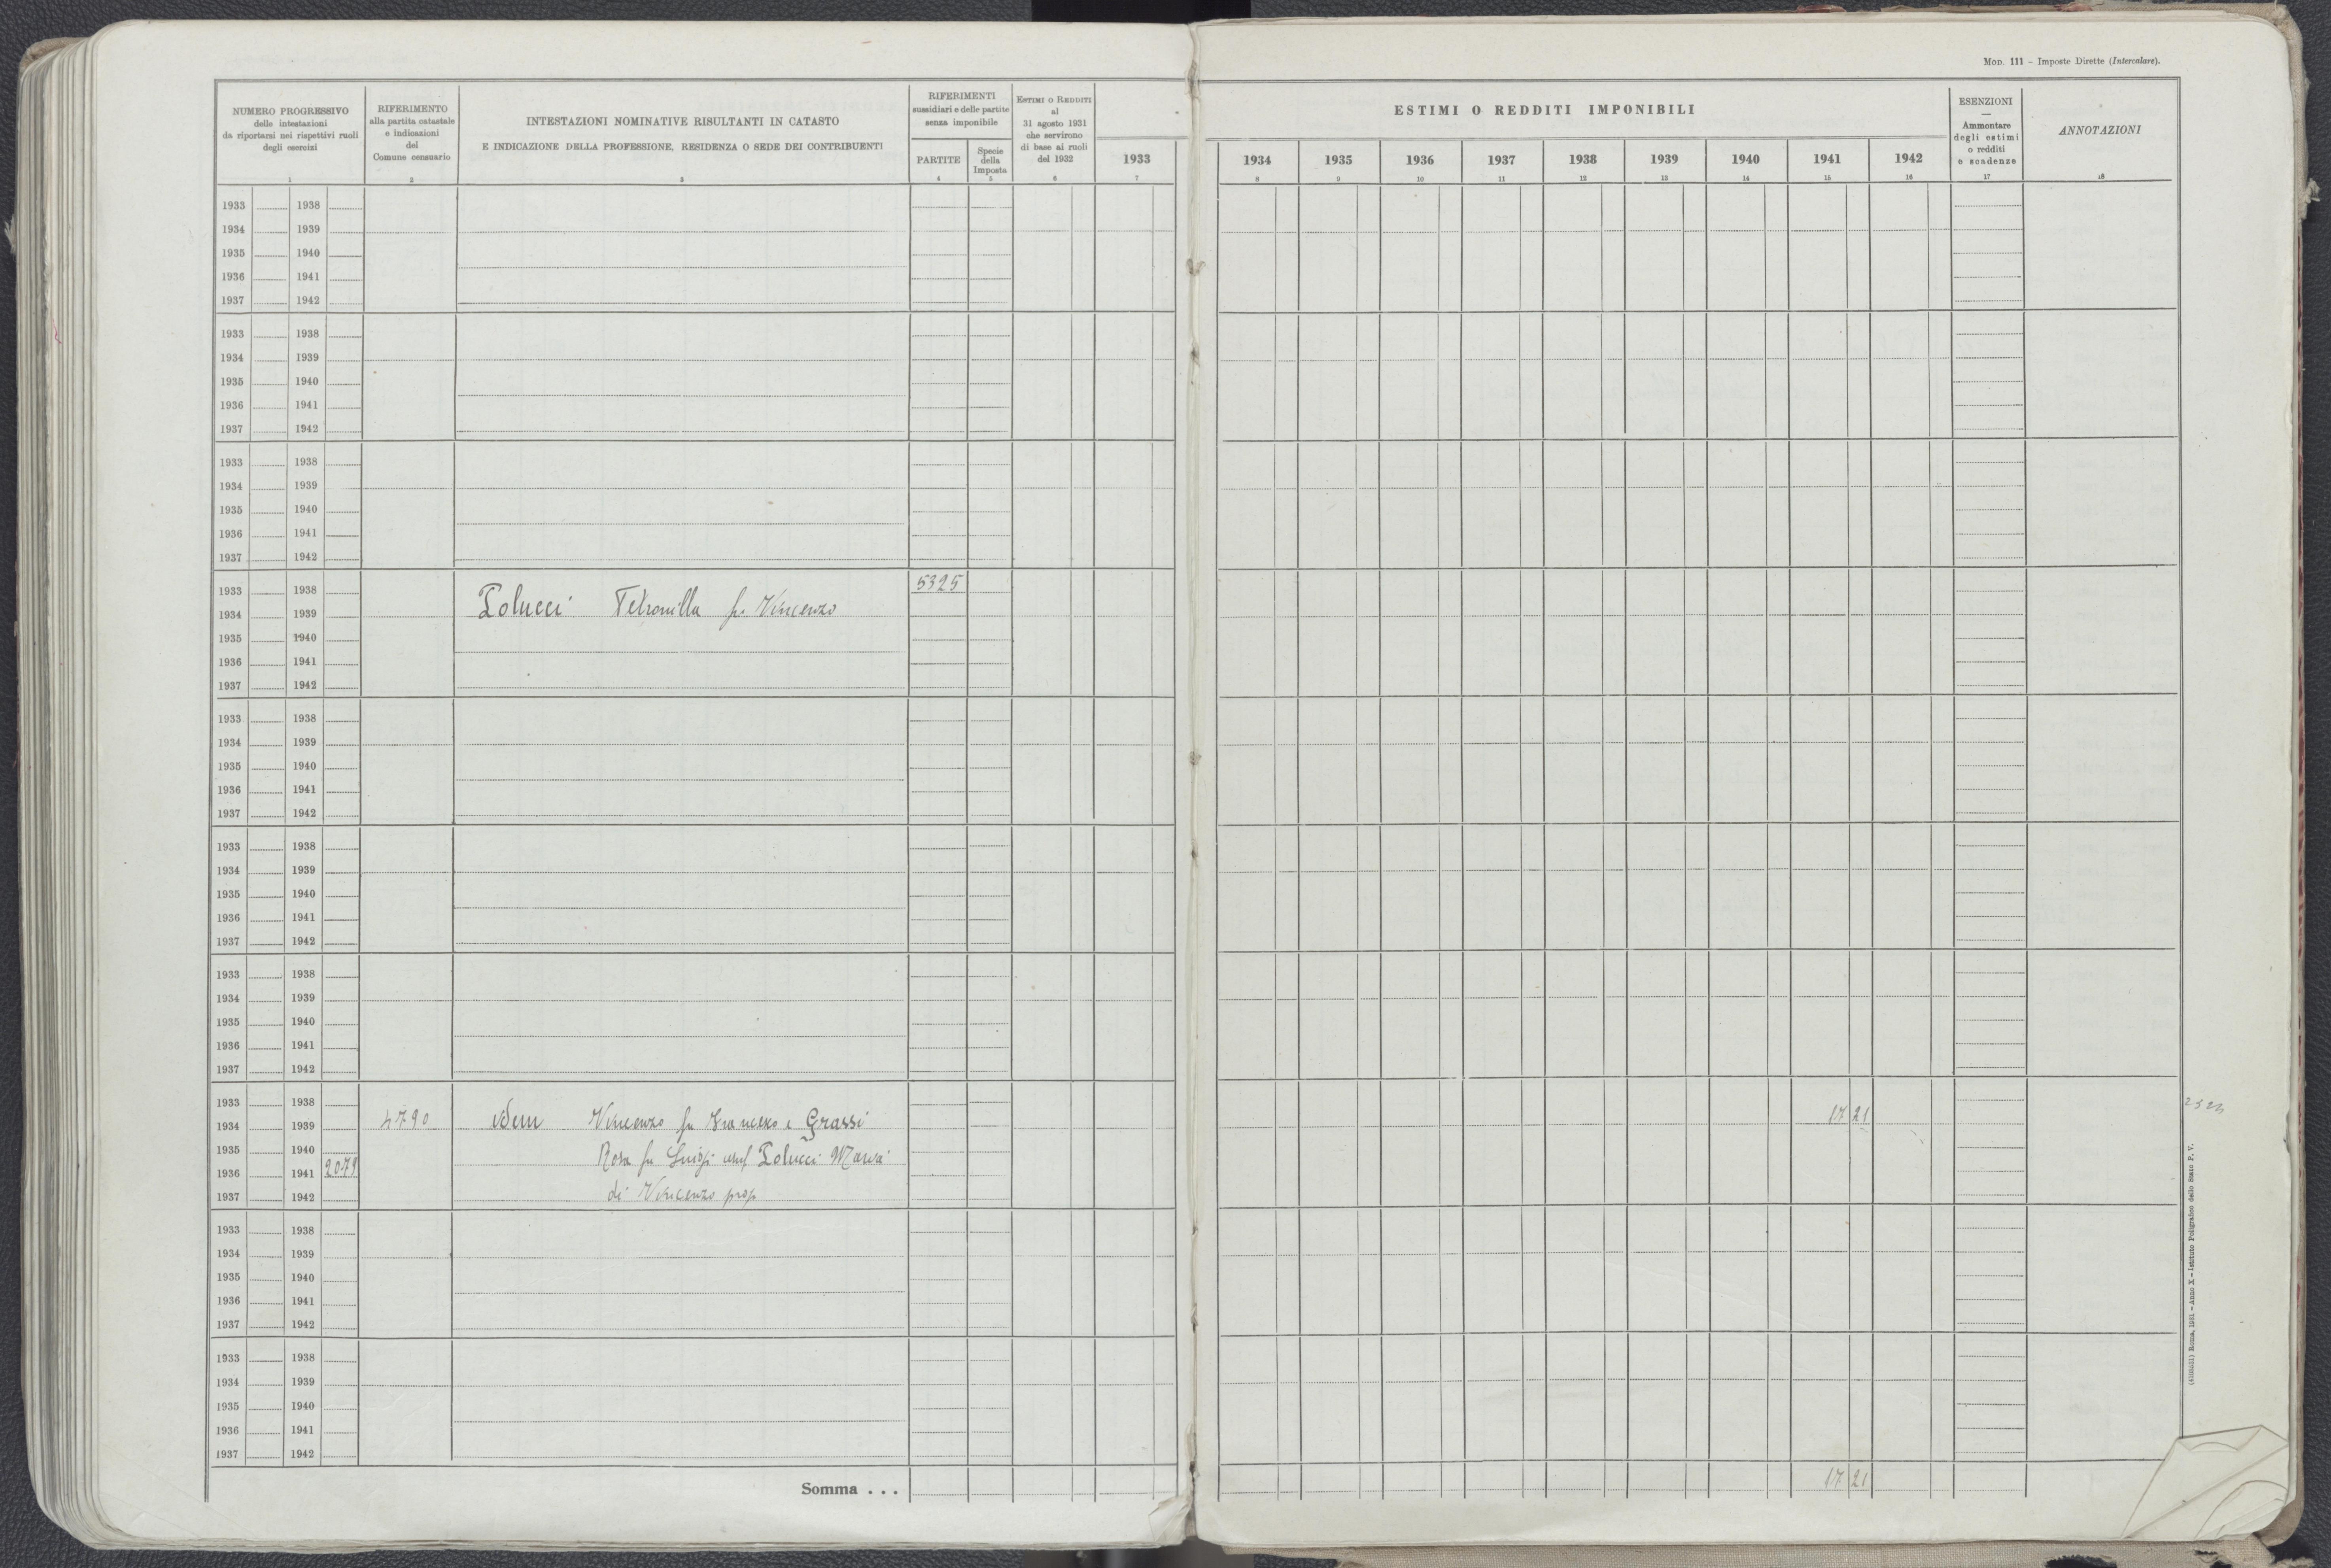 Mod. 111 – Imposte Dirette (Intercalare).
NUMERO PROGRESSIVO
delle intestazioni
da riportarsi nei rispettivi ruoli
degli esercizi
1
RIFERIMENTO
alla partita catastale
e indicazioni
del
Comune censuario
2
INTESTAZIONI NOMINATIVE RISULTANTI IN CATASTO
E INDICAZIONE DELLA PROFESSIONE, RESIDENZA O SEDE DEI CONTRIBUENTI
3
RIFERIMENTI
sussidiari e delle partite
senza imponibile
PARTITE
4
Specie
della
Imposta
5
Estimi o Redditi
al
31 agosto 1931
che servirono
di base ai ruoli
del 1932
6
1933
7
ESTIMI O REDDITI IMPONIBILI
1934 1935 1936 1937 1938 1939 1940 1941 1942
8 9 10 11 12 13 14 15 16
ESENZIONI
—
Ammontare
degli estimi
o redditi
e scadenze
17
ANNOTAZIONI
18
1933 1938
1934 1939
1935 1940
1936 1941
1937 1942
1933 1938
1934 1939
1935 1940
1936 1941
1937 1942
1933 1938
1934 1939
1935 1940
1936 1941
1937 1942
1933 1938 5325
1934 1939 Polucci Petronilla fu Vincenzo
1935 1940
1936 1941
1937 1942
1933 1938
1934 1939
1935 1940
1936 1941
1937 1942
1933 1938
1934 1939
1935 1940
1936 1941
1937 1942
1933 1938
1934 1939
1935 1940
1936 1941
1937 1942
1933 1938
1934 1939 4790 idem Vincenzo fu Francesco e Grassi 17 21
1935 1940 Rosa fu Luigi usuf Polucci Maria
1936 1941 2079
1937 1942 di Vincenzo prop
1933 1938
1934 1939
1935 1940
1936 1941
1937 1942
1933 1938
1934 1939
1935 1940
1936 1941
1937 1942
Somma . . . 17 21
(4108651) Roma, 1931 – Anno X – Istituto Poligrafico dello Stato P. V.